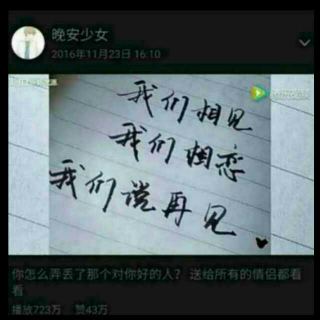 晚安少女
2016年11月23日 16:10
我们相见
我们相恋
我们说再见
你怎么弄丢了那个对你好的人？ 送给所有的情侣都看
看
播放723万 赞43万